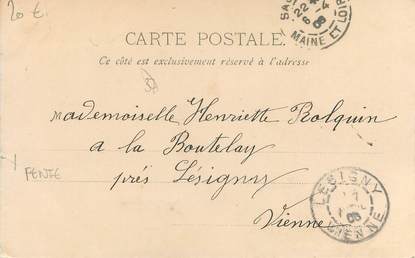 20 €.
CARTE POSTALE.
Ce côté est exclusivement réservé à l'adresse
MAINE ET LOIRE
Mademoiselle Henriette Rolquin
a la Boutelay
prés Lésigny
Vienne
FENTE
LESIGNY
VIENNE